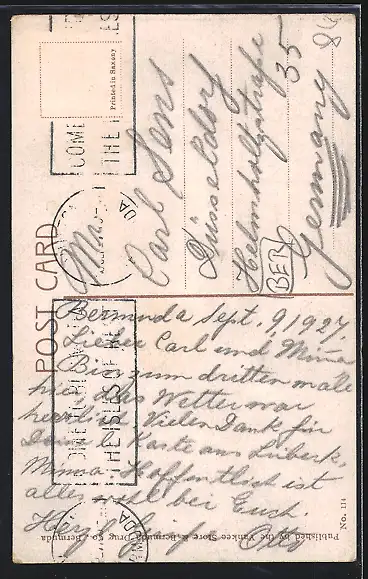 POST CARD
Printed in Saxony
COME
THE I
Carl Sens
Düsseldorf
Helmholtzstraße
35
Germany
BER
Bermuda Sept. 9, 1927.
Lieber Carl und Mina
Bin zum dritten male
hier, das Wetter war
herrlich. Vielen Dank für
Deine l. Karte aus Lübeck,
Minna - Hoffentlich ist
alles wohl bei Euch.
Herzl. Otto
THE ISLES OF RES
Published by the Yankee Store & Bermuda Drug Co., Bermuda
No. 114